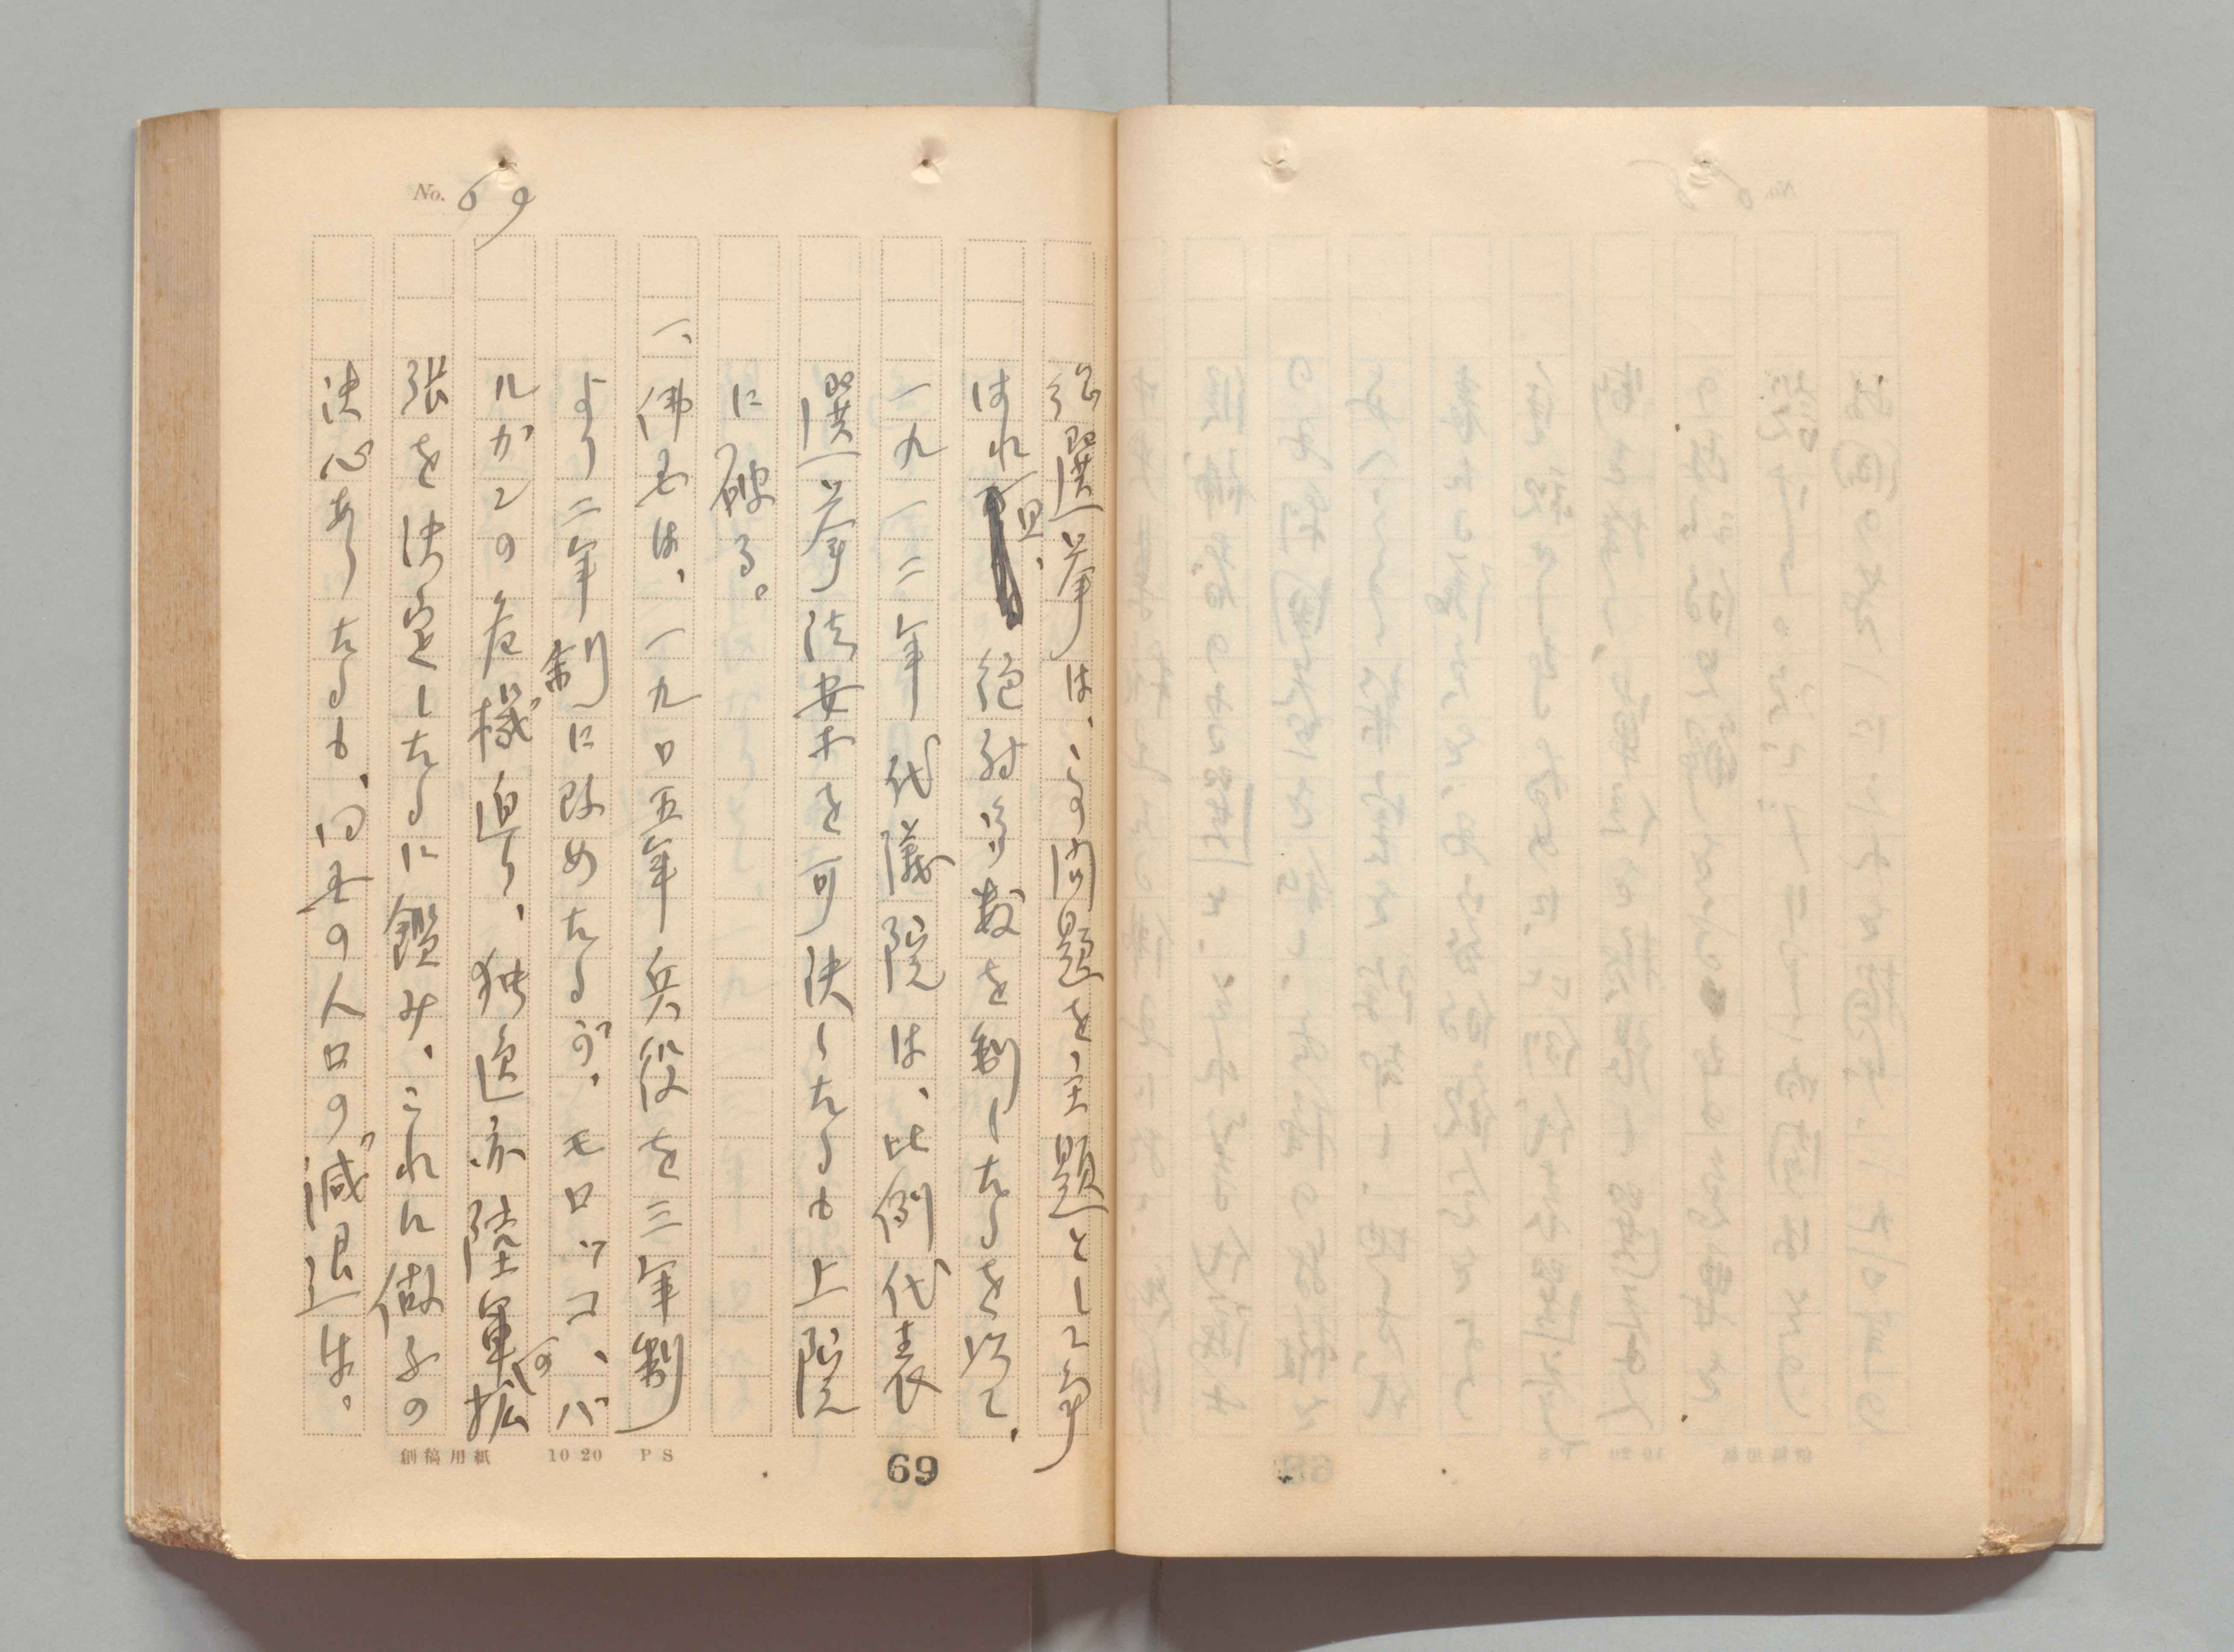 No. 69
総選挙は、この問題を主題として争
はれ、且、絶対多数を制したるを以て、
一九一二年代議院は、比例代表
選挙法案を可決したるも上院
に破る。
一、佛国は、一九〇五年兵役を三年制
より二年制に改めたるが、モロッコ、バ
ルカンの危機迫り、独逸亦陸軍の拡
張を決定したるに鑑み、これに倣ふの
決心ありたるも、同国の人口の減退は、
創稿用紙 10 20 PS
69